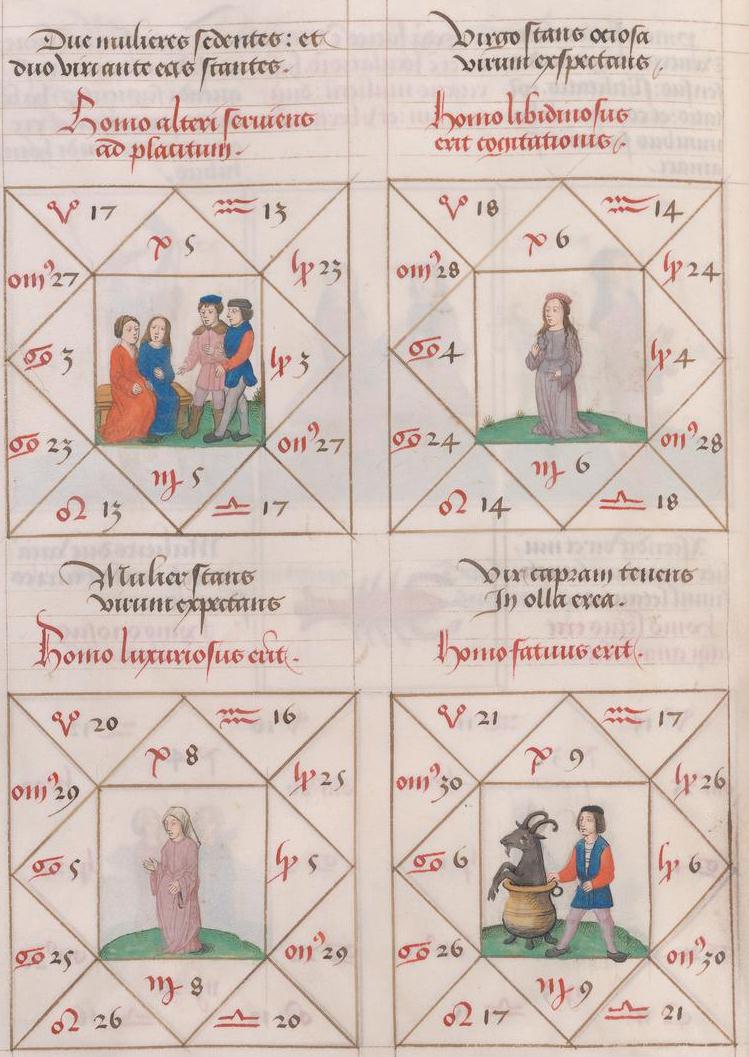 Due mulieres sedentes: et
duo viri ante eas stantes.
Homo alteri serviens
ad placitum.
♈ 17
♒ 13
♓ 5
27
23
♋ 3
3
♋ 23
27
♍ 5
♌ 13
♎ 17
Virgo stans ociosa
virum exspectans.
Homo libidinosus
erit cogitationis.
♈ 18
♒ 14
♓ 6
28
24
♋ 4
4
♋ 24
28
♍ 6
♌ 14
♎ 18
Mulier stans
virum expectans
Homo luxuriosus erit.
♈ 20
♒ 16
♓ 8
29
25
♋ 5
5
♋ 25
29
♍ 8
♌ 26
♎ 20
Vir capram tenens
In olla erea.
Homo fatuus erit.
♈ 21
♒ 17
♓ 9
30
26
♋ 6
6
♋ 26
30
♍ 9
♌ 17
♎ 21